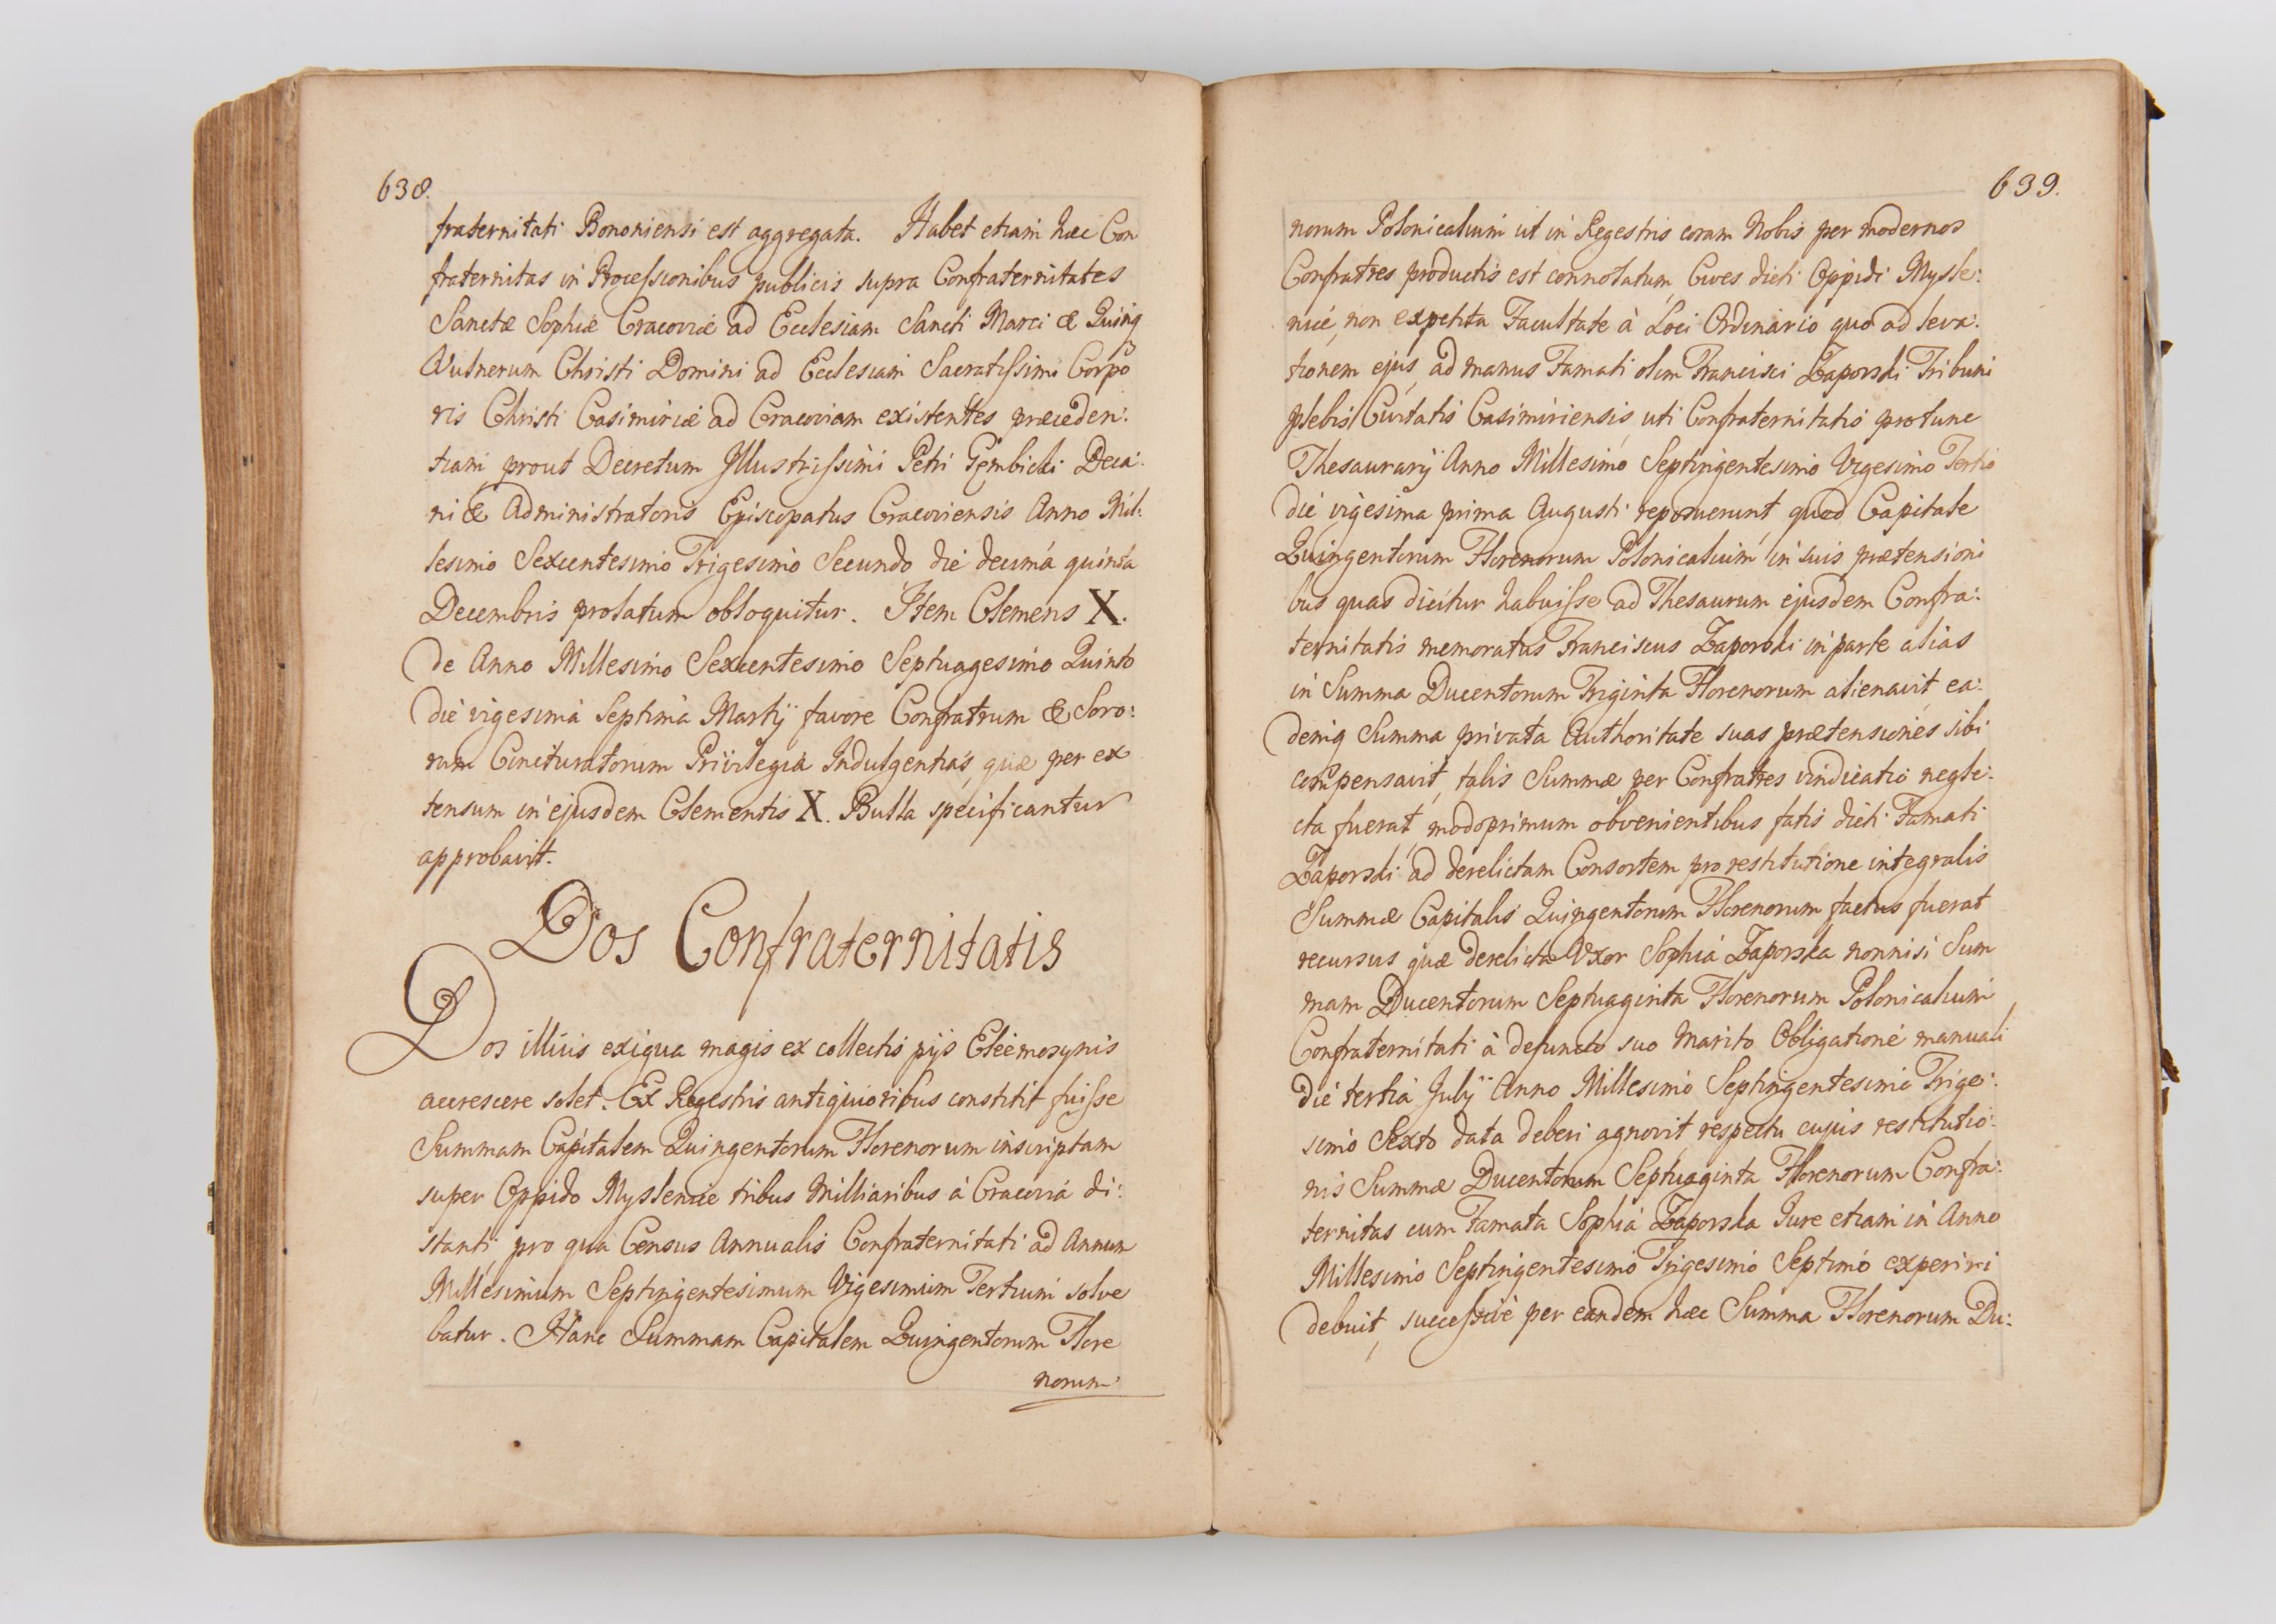 638.
fraternitati Bononiensi est aggregata. Habet etiam hæc Con
fraternitas in Processionibus publicis supra Confraternitates
Sanctæ Sophiæ Cracoviæ ad Ecclesiam Sancti Marci & Quinq
Vulnerum Christi Domini ad Ecclesiam Sacratissimi Corpo
ris Christi Casimiriæ ad Cracoviam existentes præceden:
tiam, prout Decretum Illustrissimi Petri Gembicki Deca:
ni & Administratoris Episcopatus Cracoviensis Anno Mil:
lesimo Sexcentesimo Trigesimo Secundo die decimá quintá
Decembris prolatum obloquitur. Item Clemens X.
de Anno Millesimo Sexcentesimo Septuagesimo Quinto
die vigesimá Septimá Martij favore Confratrum & Soro:
rum Cincturatorum Privilegia Indulgentias, quæ per ex
tensum in ejusdem Clementis X. Bulla specificantur
approbavit.
Dos Confraternitatis
Dos illius exigua magis ex collectis pijs Eleemosynis
accrescere solet. Ex Regestris antiquioribus constitit fuisse
Summam Capitalem Quingentorum Florenorum inscriptam
super Oppido Myslenice tribus Milliaribus á Cracoviá di:
stanti, pro qua Census Annualis Confraternitati ad Annum
Millesimum Septingentesimum Vigesimum Tertium solve
batur. Hanc Summam Capitalem Quingentorum Flore
norum
639.
norum Polonicalium ut in Regestris coram Nobis per modernos
Confratres productis est connotatum, Cives dicti Oppidi Mysle:
nicé, non expetita Facultate à Loci Ordinario quo ad leva:
tionem ejus, ad manus Famati olim Francisci Zaporski Tribuni
plebis Civitatis Casimiriensis, uti Confraternitatis protunc
Thesaurarij Anno Millesimo Septingentesimo Vigesimo Tertio
die vigesima prima Augusti reposuerunt, quod Capitale
Quingentorum Florenorum Polonicalium in suis prætensioni
bus quas dicitur habuisse ad Thesaurum ejusdem Confra:
ternitatis memoratus Franciscus Zaporski in parte alias
in Summa Ducentorum Triginta Florenorum alienavit, ea:
demq Summa privata Authoritate suas prætensiones sibi
compensavit, talis Summæ per Confratres vindicatio negle:
cta fuerat, modoprimum obvenientibus fatis dicti Famati
Zaporski ad derelictam Consortem pro restitutione integralis
Summæ Capitalis Quingentorum Florenorum factus fuerat
recursus quæ derelicta Uxor Sophia Zaporska nonnisi Sum
mam Ducentorum Septuaginta Florenorum Polonicalium
Confraternitati à defuncto suo Marito Obligatione manuali
die tertia Julij Anno Millesimo Septingentesimo Trige:
simo Sexto data deberi agnovit, respectu cujus restitutio:
nis Summæ Ducentorum Septuaginta Florenorum Confra:
ternitas cum Famata Sophia Zaporska Jure etiam in Anno
Millesimo Septingentesimo Trigesimo Septimo experiri
debuit, successivè per eandem hæc Summa Florenorum Du: